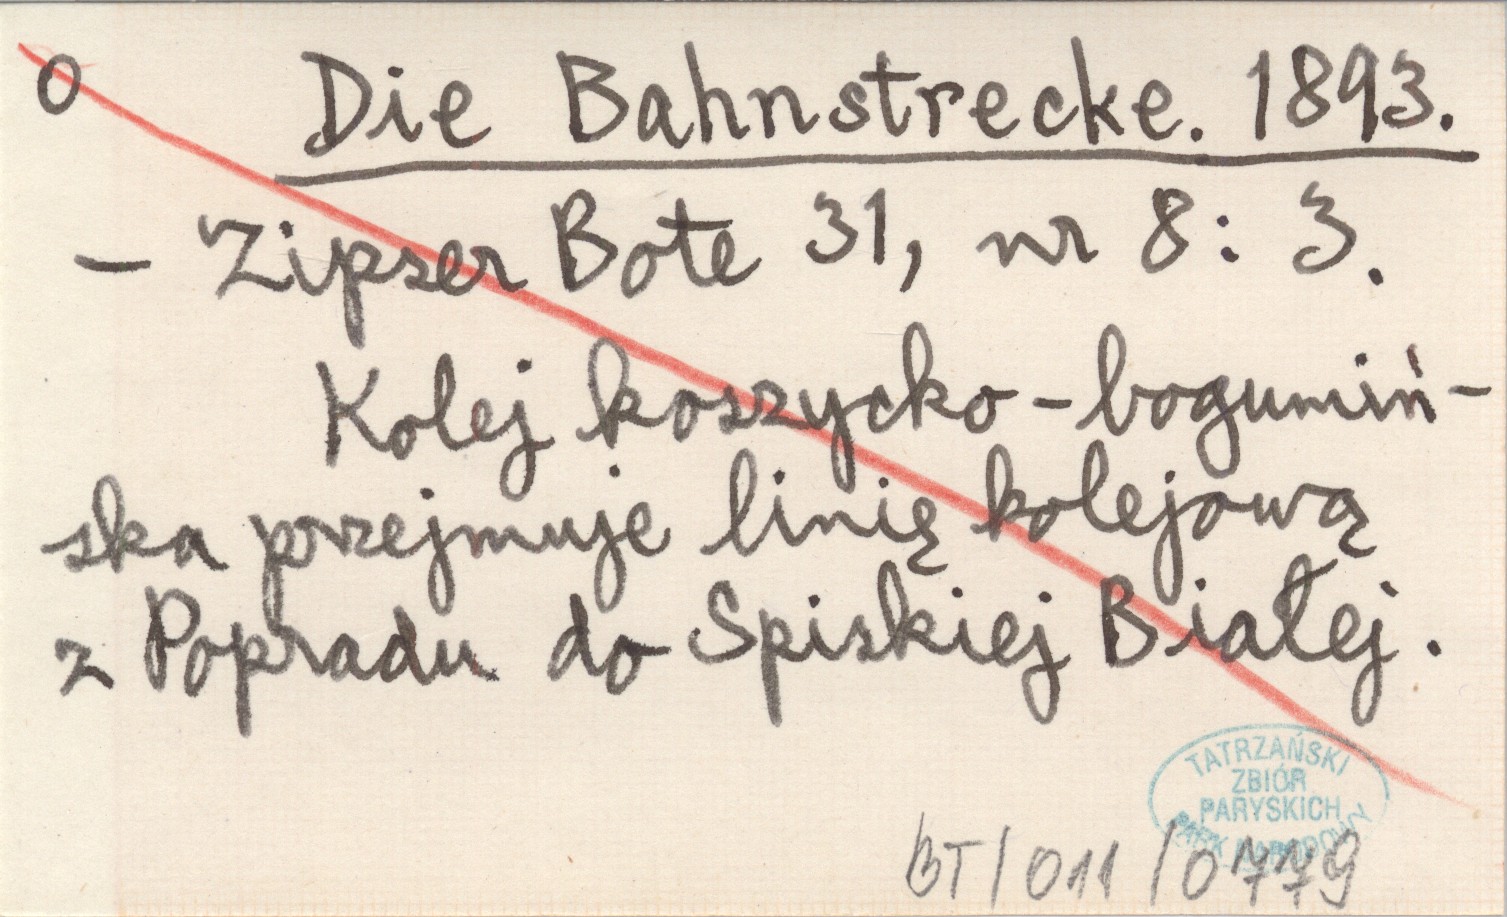 O Die Bahnstrecke. 1893.
– Zipser Bote 31, nr 8: 3.
Kolej koszycko-bogumiń-
ska przejmuje linię kolejową
z Popradu do Spiskiej Białej.
TATRZAŃSKI
ZBIÓR
PARYSKICH
PARK NARODOWY
BT/011/0779